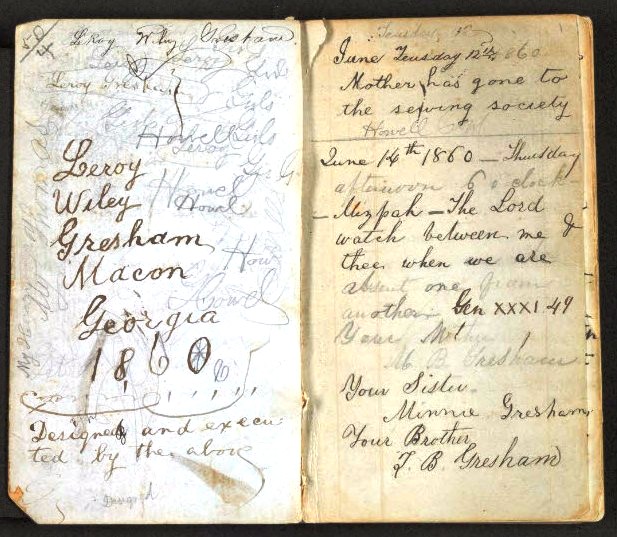 LeRoy Wiley Gresham
Leroy Gresham
Girls
Girls
Howell Girls
Leroy
Howel
Howel
Howel
Leroy
Wiley
Gresham
Macon
Georgia
1860
Designed and execu
ted by the above
Designed
Tuesday
June Teusday 12th 1860
Mother has gone to
the sewing society
Howell
June 14th 1860 — Thursday
afternoon 6 o clock
— Mizpah — The Lord
watch between me &
thee when we are
absent one from
another. Gen XXXI 49
Your Mother
M. B. Gresham
Your Sister
Minnie Gresham
Your Brother
T. B. Gresham